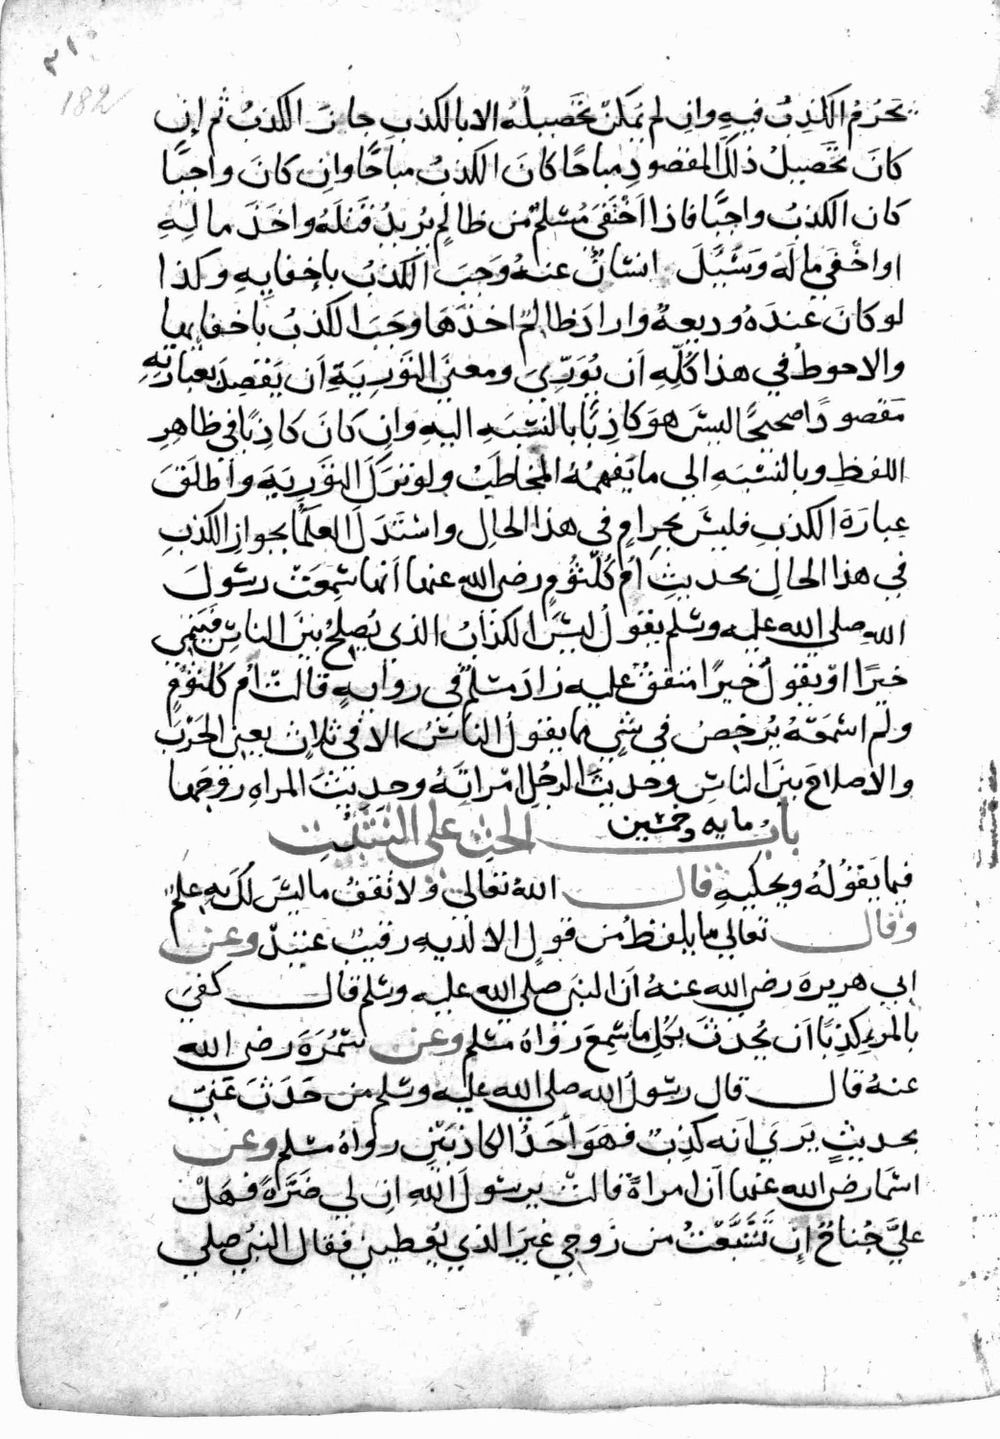 182
يحرُم الكذبُ فيهِ وان لم يمكن تحصيلُهُ الا بالكذبِ جازَ الكذبُ ثم إن
كانَ تحصيلُ ذلكَ المقصودِ مباحًا كانَ الكذبُ مباحًا وان كانَ واجبًا
كان الكذبُ واجبًا فاذا اختفى مُسْلمٌ من ظالمٍ يريدُ قتلَهُ واخذَ مالِهِ
او اخفى مالَهُ وسُئِلَ انسانٌ عنهُ وَجبَ الكذبُ بإخفايِهِ وكذا
لو كانَ عندَهُ وديعةٌ واراد ظالمٌ اخذَها وجبَ الكذبُ باخفايها
والاحوطُ في هذا كُلِّهِ اَن يُوَرِّيَ ومعنَى التَّورِيَةِ اَن يَقصِدَ بعبارَتِهِ
مقصودًا صحيحًا ليسَ هوَ كاذِبًا بالنسْبَهِ اليهِ وان كَانَ كاذِبًا في ظاهِرِ
اللفظِ وبالنسْبَهِ الى ما يَفهمُهُ المخاطَبُ ولو ترَكَ التوريَةَ واَطلقَ
عِبارَةَ الكذبِ فليسَ بحرامٍ في هذا الحالِ واسْتَدَلَّ العلمَا بجوازِ الكذبِ
في هذا الحالِ بحديثِ اُم كُلثُومٍ رضى الله عنها اَنها سَمِعَتْ رسُولَ
اللهِ صلى الله عليه وسَلم يقولُ ليسَ الكذابُ الذى يُصلِحُ بينَ الناسِ فَيَنمي
خيرًا اوْ يقولُ خيرًا متفقٌ عليهِ زادَ مسْلمٌ فى روايهٍ قالتْ اُم كُلثومٍ
ولم اسْمَعْهُ يُرخِصُ في شيٍ مما يقولُ الناسُ الا في ثلاثٍ يعنى الحَرْبَ
والاصلاحَ بينَ الناسِ وحديثَ الرجُلِ امْرَاتَهُ وحديثَ المراهِ زوجَها
بابُ مايه وخمسين الحثِ على التثبُّتِ
فيما يَقوُلُهُ ويحكيهِ قال اللهُ تعالى وَلا تقفُ ما ليسَ لكَ بهِ علمٌ
وقال تعالى ما يلفظُ من قولٍ الا لديهِ رقيبٌ عتيدٌ وعن
ابي هريرهَ رضى الله عنهُ اَن النبيَ صلى الله عليه وسَلم قال كفىَ
بالمرءِ كذِبًا اَن يُحدثَ بكُلِ ما سَمِعَ رَوَاهُ مسْلم وعن سَمُرَةَ رضى الله
عنهُ قال قال رسُولُ الله صلى الله عليه وسَلم من حَدَثَ عَنِيّ
بحديثٍ يَرىَ اَنه كذِبٌ فهوَ اَحَدُ الكاذبَيْنِ رواهُ مسْلم وعن
اسْمَا رضى الله عنها اَن امراةً قالتْ يرسُولَ الله ان لي ضَرَّهً فهَلْ
عليَّ جُناحٌ إن تَشَبَّعْتُ من زوجي غيرَ الذي يُعطيني فقال النبيُ صلى